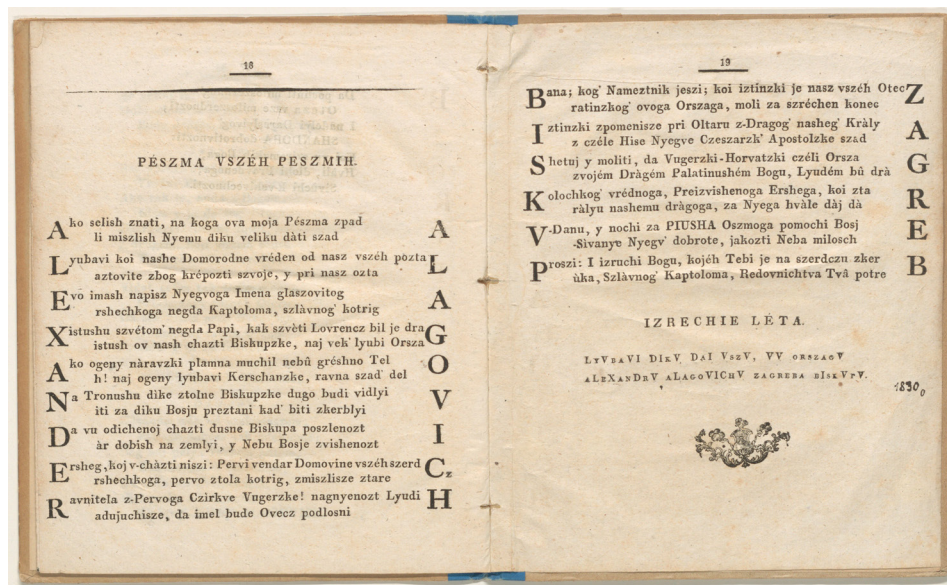 18
PÉSZMA VSZÉH PESZMIH.
Ako selish znati, na koga ova moja Pészma zpad A
li miszlish Nyemu diku veliku dàti szad
Lyubavi koi nashe Domorodne vréden od nasz vszéh pozta L
aztovite zbog krépozti szvoje, y pri nasz ozta
Evo imash napisz Nyegvoga Imena glaszovitog A
rshechkoga negda Kaptoloma, szlàvnog' kotrig
Xistushu szvétom' negda Papi, kak szvèti Lovrencz bil je dra G
istush ov nash chazti Biskupzke, naj vek' lyubi Orsza
Ako ogeny nàravzki plamna muchil nebû gréshno Tel O
h! naj ogeny lyubavi Kerschanzke, ravna szad' del
Na Tronushu dike ztolne Biskupzke dugo budi vidlyi V
iti za diku Bosju preztani kad' biti zkerblyi
Da vu odichenoj chazti dusne Biskupa poszlenozt I
àr dobish na zemlyi, y Nebu Bosje zvishenozt
Ersheg, koj v-chàzti niszi: Pervi vendar Domovine vszéh szerd Cz
rshechkoga, pervo ztola kotrig, zmiszlisze ztare
Ravnitela z-Pervoga Czirkve Vugerzke! nagnyenozt Lyudi H
adujuchisze, da imel bude Ovecz podlosni
19
Bana; kog' Nameztnik jeszi; koi iztinzki je nasz vszéh Otec Z
ratinzkog' ovoga Orszaga, moli za szréchen konec
Iztinzki zpomenisze pri Oltaru z-Dragog' nasheg' Kràly A
z czéle Hise Nyegve Czeszarzk' Apostolzke szad
Shetuj y moliti, da Vugerzki-Horvatzki czéli Orsza G
zvojém Dràgém Palatinushém Bogu, Lyudém bû drà
Kolochkog' vrédnoga, Preizvishenoga Ershega, koi zta R
ràlyu nashemu dràgoga, za Nyega hvàle dàj dà
V-Danu, y nochi za PIUSHA Oszmoga pomochi Bosj E
-Sivanye Nyegv' dobrote, jakozti Neba milosch
Proszi: I izruchi Bogu, kojéh Tebi je na szerdczu zker B
ùka, Szlàvnog' Kaptoloma, Redovnichtva Tvâ potre
IZRECHIE LÉTA.
LyVbaVI DIkV DaI VszV, VV orszagV
aLeXanDrV aLagoVICHV zagreba bIskVpV.
1830